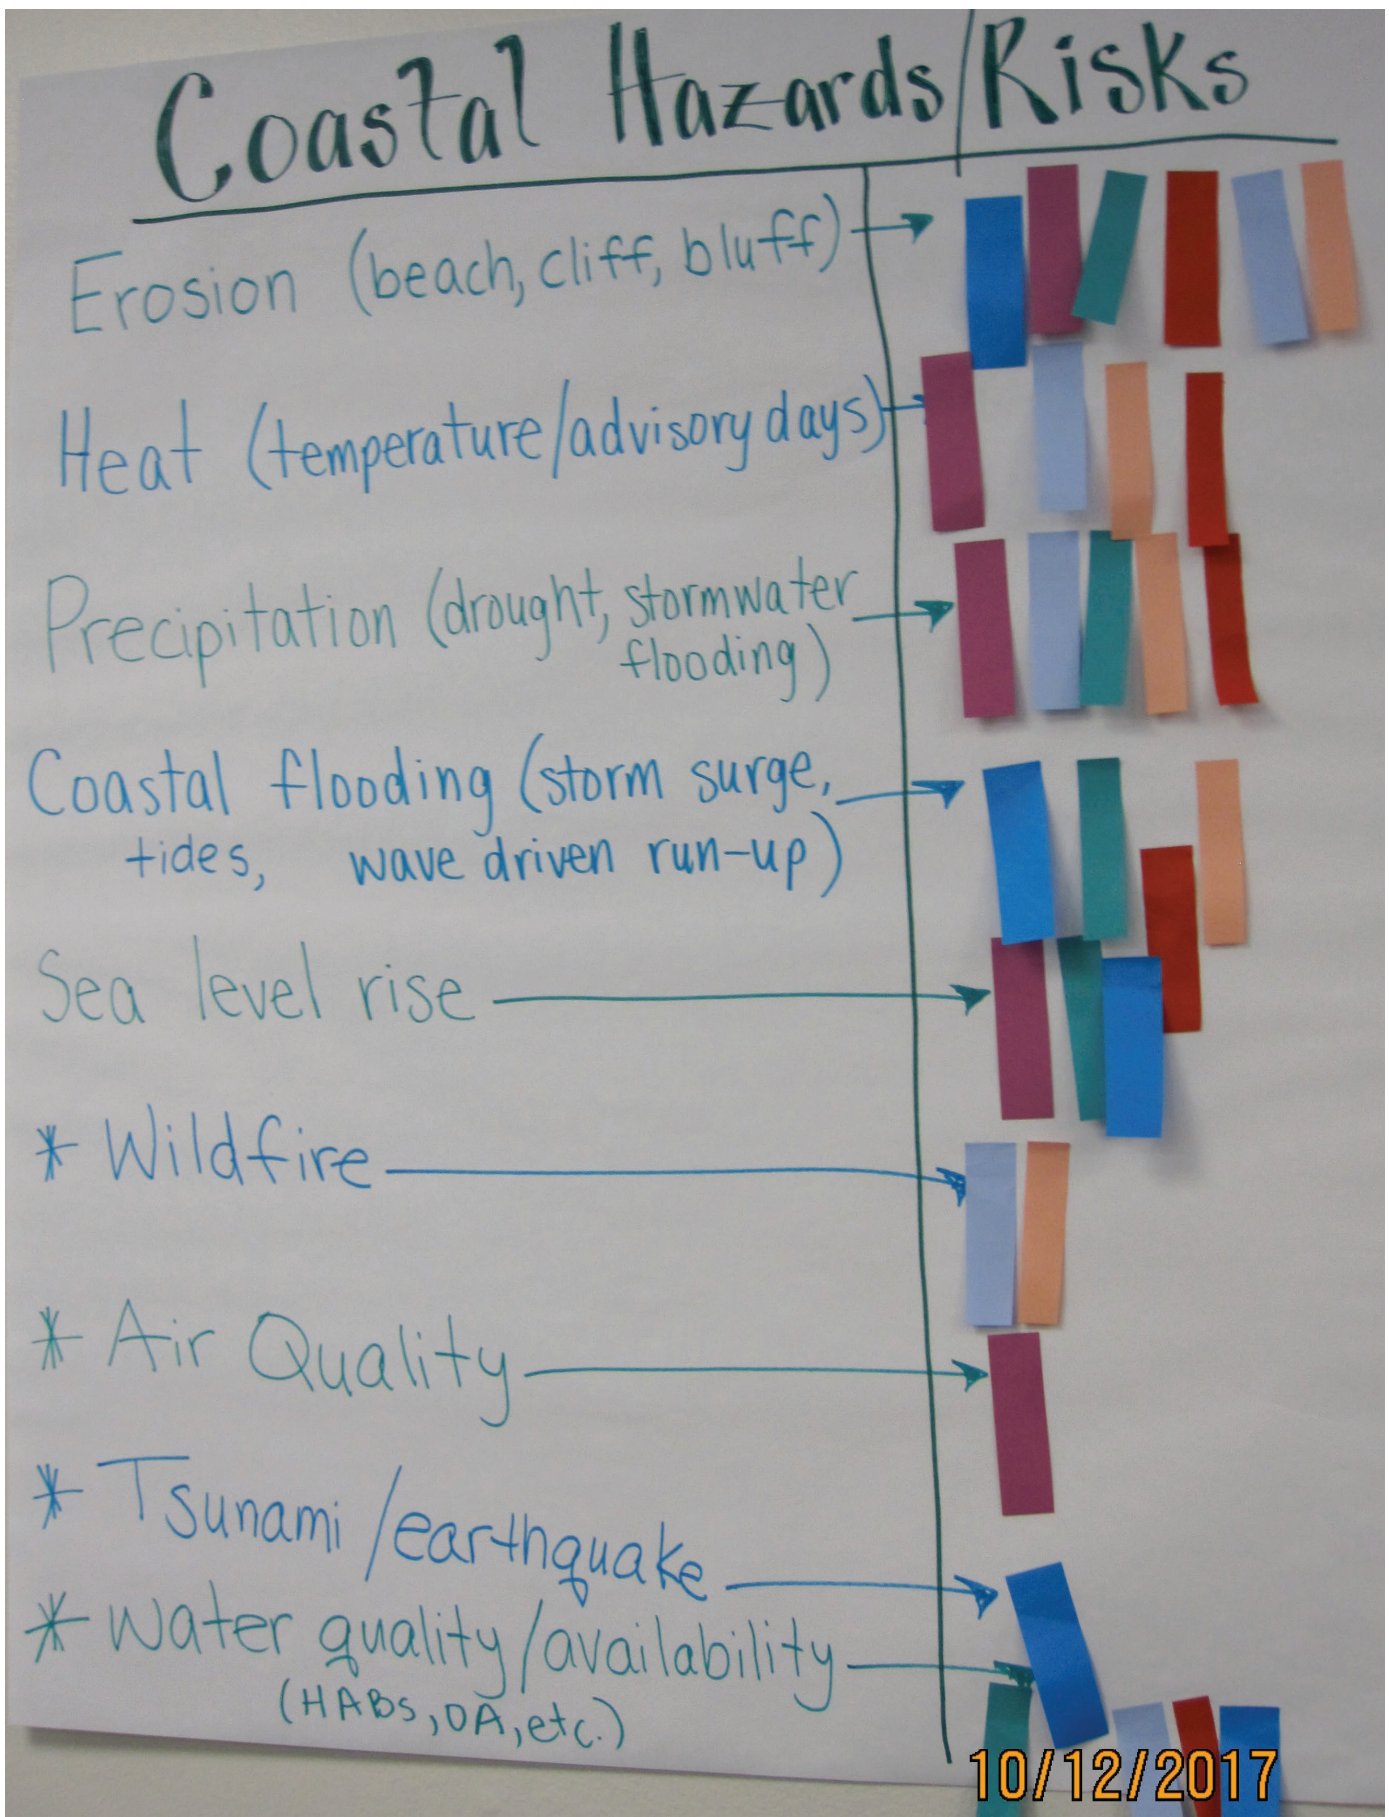 Coastal Hazards/Risks
Erosion (beach, cliff, bluff)
Heat (temperature/advisory days)
Precipitation (drought, stormwater
flooding)
Coastal flooding (storm surge,
tides, wave driven run-up)
Sea level rise
* Wildfire
* Air Quality
* Tsunami/earthquake
* Water quality/availability
(HABs, OA, etc.)
10/12/2017